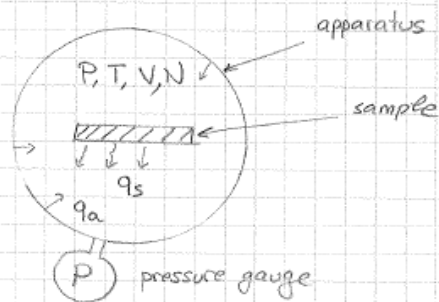 apparatus
P, T, V, N
sample
qs
qa
P
pressure gauge